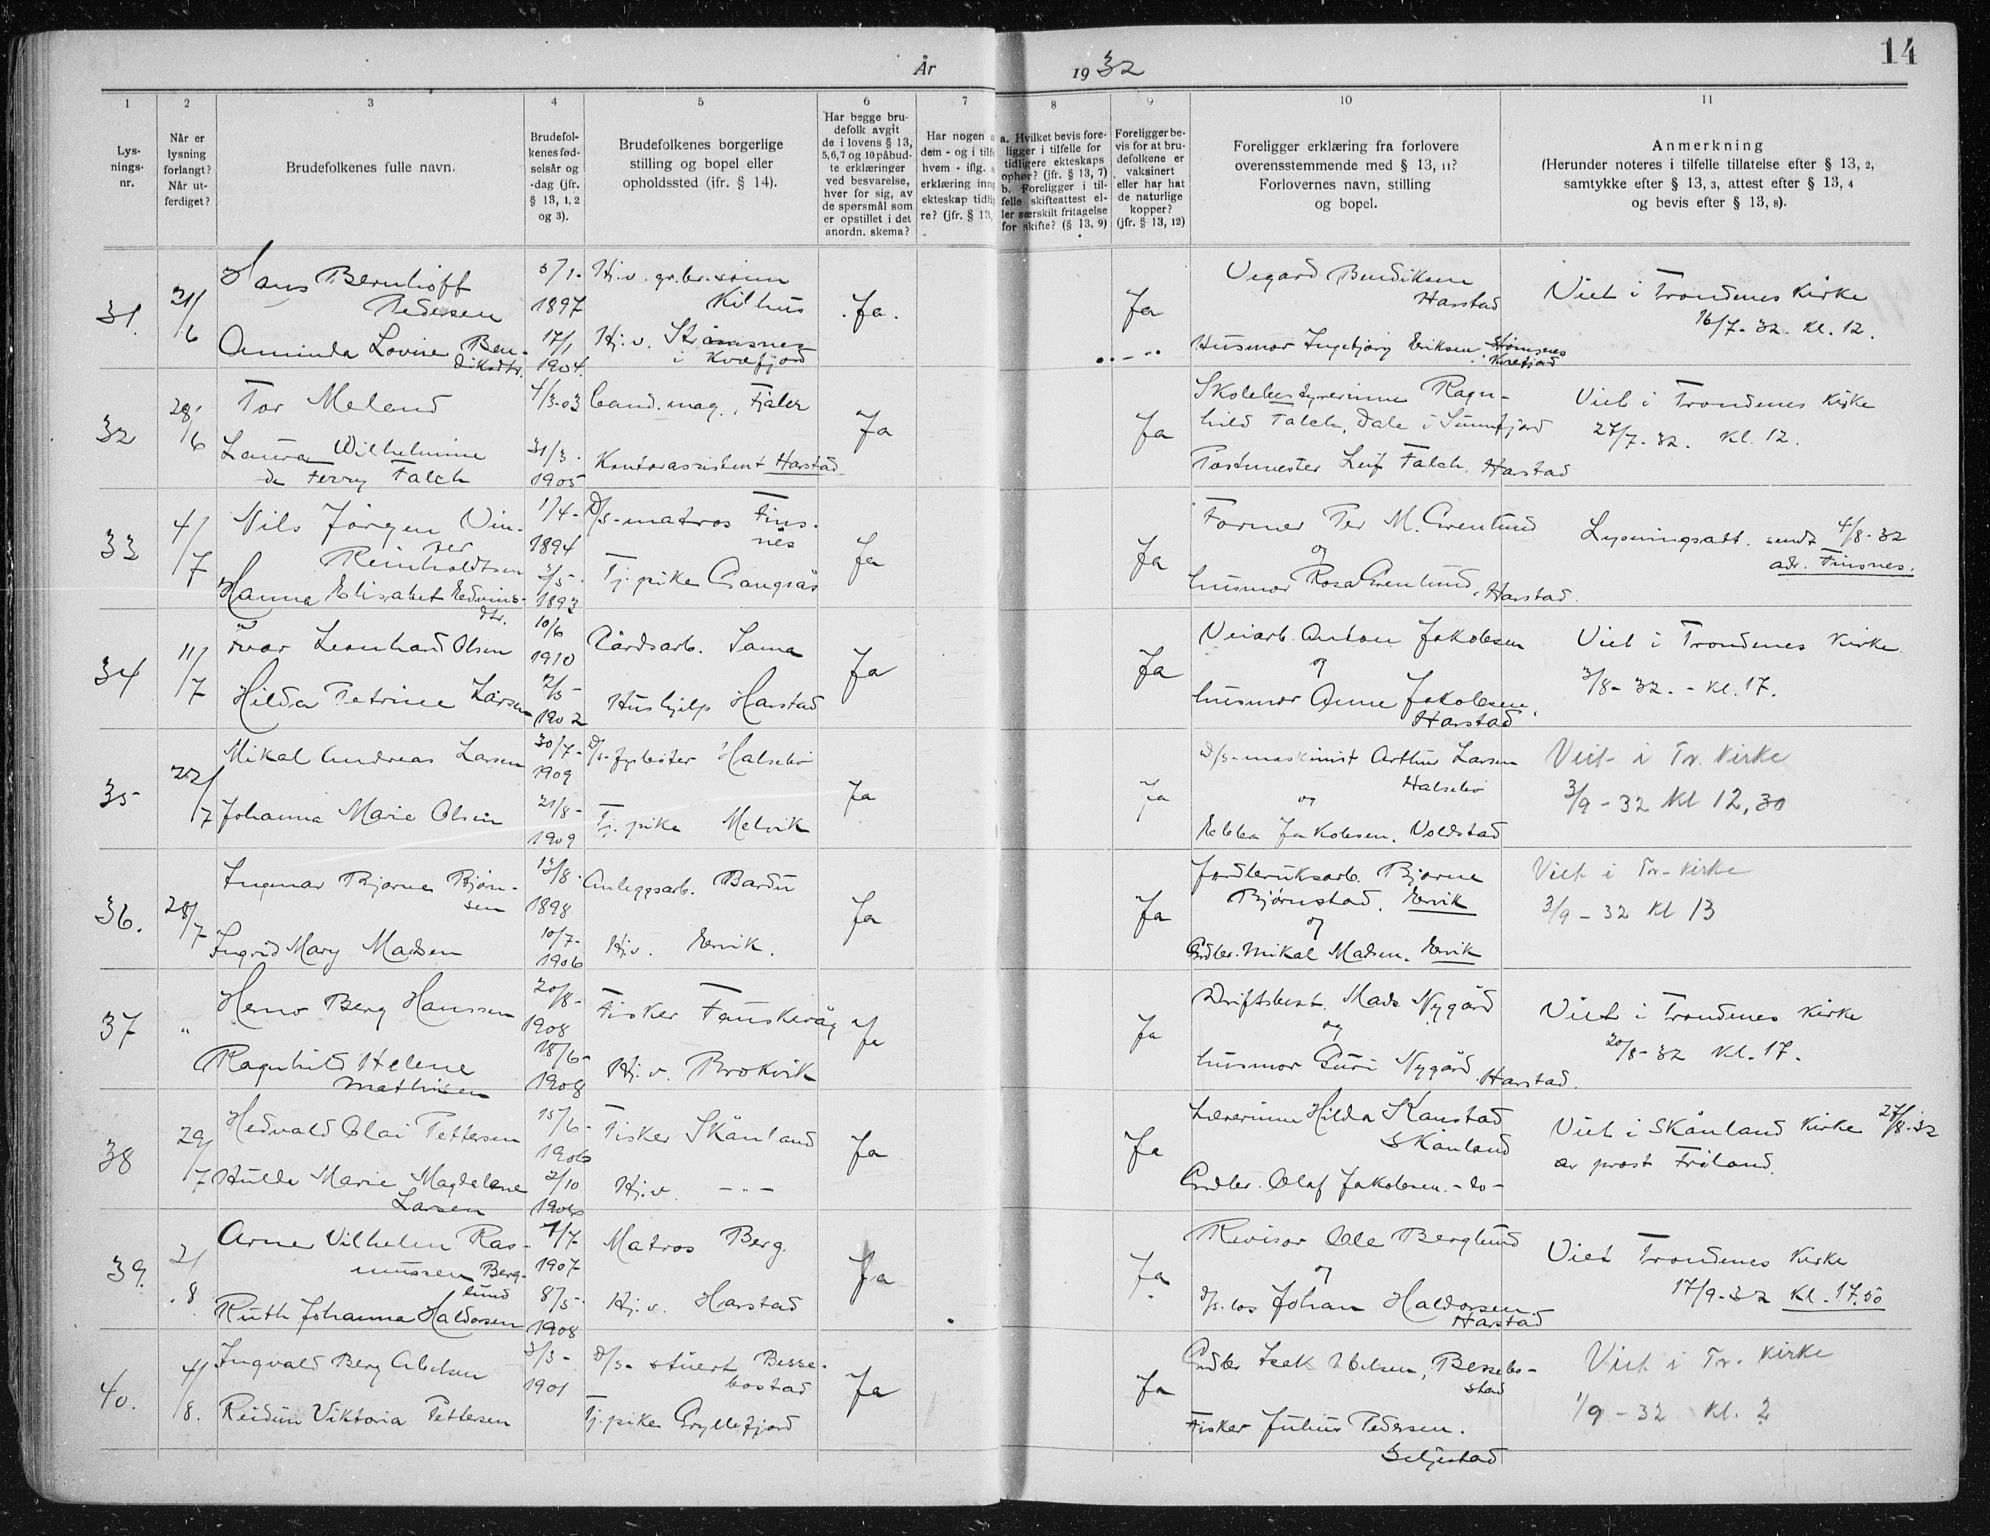 14
År 1932
1 2 3 4 5 6 7 8 9 10 11
Lys-
nings-
nr.
Når er
lysning
forlangt?
Når ut-
ferdiget?
Brudefolkenes fulle navn.
Brudefol-
kenes fød-
selsår og
-dag (jfr.
§ 13, 1, 2
og 3).
Brudefolkenes borgerlige
stilling og bopel eller
opholdssted (jfr. § 14).
Har begge bru-
defolk avgit
de i lovens § 13,
5,6,7 og 10 påbud-
te erklæringer
ved besvarelse,
hver for sig, av
de spørsmål som
er opstillet i det
anordn. skema?
Har nogen a
dem - og i tilfe
hvem - iflg. s
erklæring inng
ekteskap tidlig
re? (jfr. § 13,
a. Hvilket bevis fore-
ligger i tilfelle for
tidligere ekteskaps
ophør? (jfr. § 13, 7)
b. Foreligger i til-
felle skifteattest el-
ler særskilt fritagelse
for skifte? (§ 13, 9)
Foreligger be-
vis for at bru-
defolkene er
vaksinert
eller har hat
de naturlige
kopper?
(jfr. § 13, 12)
Foreligger erklæring fra forlovere
overensstemmende med § 13, 11?
Forlovernes navn, stilling
og bopel.
Anmerkning
(Herunder noteres i tilfelle tillatelse efter § 13, 2,
samtykke efter § 13, 3, attest efter § 13, 4
og bevis efter § 13, 8).
31. 21/6
Hans Bernhoff
Pedersen
5/1-
1897
Hj.v. gr.br. sønn
Kilhus
Ja.
Aminda Lovise Ben-
diksdtr.
17/1
1904.
Hj.v. Strømsnes
i Kvæfjord
Ja
Vegard Bendiksen
Harstad
Husmor Ingebjørg Eriksen Strømsnes
Kvæfjord
Viet i Trondenes Kirke
16/7-32. Kl. 12.
32 28/6
Tor Meland
4/3-03
Cand. mag., Fjaler
Ja
Laura Wilhelmine
de Ferry Falch
31/3.
1905
Kontorassistent Harstad
Ja
Skolebestyrerinne Ragn-
hild Falch, Dale i Sunnfjord
Postmester Leif Falch, Harstad
Viet i Trondenes Kirke
27/7-32. Kl. 12.
33 4/7
Nils Jørgen Vin-
ter
Reinholdtsen
1/4-
1894
D/s-matros Fins-
nes
Ja
Hanna Elisabet Edvins-
dtr.
2/5-
1893
Tj.pike Gangsås
Ja
Former Per M. Grenlund
og
husmor Rosa Grenlund, Harstad.
Lysningsatt. sendt 4/8-32
adr. Finsnes.
34 11/7
Ivar Leonhard Olsen
10/6
1910
Gårdsarb. Sama
Ja
Hilda Petrine Larsen
2/5-
1902
Hushjelp Harstad
Ja
Veiarb. Anton Jakobsen
og
husmor Anne Jakobsen,
Harstad
Viet i Trondenes Kirke
3/8-32. - Kl. 17.
35 22/7
Mikal Andreas Larsen
30/7-
1909
D/s-fyrbøter Halsebø
Ja
Johanna Marie Olsen
21/8-
1909
Tj.pike Melvik
Ja
D/s-maskinist Arthur Larsen
Halsebø
og
Ebba Jakobsen, Voldstad
Viet i Tr. Kirke
3/9-32 Kl 12,30
36. 28/7
Ingmar Bjarne Bjørn-
sen
13/8.
1898
Anleggsarb. Bardu
Ja
Ingrid Mary Madsen
10/7-
1906
Hj.v. Ervik.
Ja
Jordbruksarb. Bjarne
Bjørnstad, Ervik
og
Grdbr. Mikal Madsen, Ervik
Viet i Tr. Kirke
3/9-32 Kl 13
37 "
Herno Berg Hanssen
20/8-
1908
Fisker Fauskevåg
Ja
Ragnhild Helene
Mathisen
18/6-
1908
Hj.v. Brokvik
Ja
Driftsbest. Mads Nygård
og
husmor Guri Nygård Harstad.
Viet i Trondenes Kirke
20/8-32 Kl. 17.
38 29/7
Hedvald Olai Pettersen
15/6-
1906
Fisker Skånland
Ja
Hulda Marie Magdalene
Larsen
2/10
1906
Hj.v. -"-
Ja
Lærerinne Hilda Kanstad
Skånland
Grdbr. Olaf Jakobsen. -do-
Viet i Skånland Kirke 27/8-32
av prost Frøland.
39. 2/8
Arne Vilhelm Ras-
mussen Berg-
lund
7/7
1907
Matros Berg.
Ja
Ruth Johanna Haldorsen
8/5-
1908
Hj.v. Harstad
Ja
Revisor Ole Berglund
og
D/s. los Johan Haldorsen
Harstad
Viet Trondenes Kirke
17/9-32 Kl. 17.00
40. 4/8.
Ingvald Berg Abelsen
3/3-
1901
D/s- stuert Besse-
bostad
Ja
Reidun Viktoria Pettersen
Tj.pike Gryllefjord
Ja
Grdbr Isak Abelsen, Bessebo-
stad
Fisker Julius Pedersen.
Seljestad
Viet i Tr. Kirke
1/9-32 Kl. 2